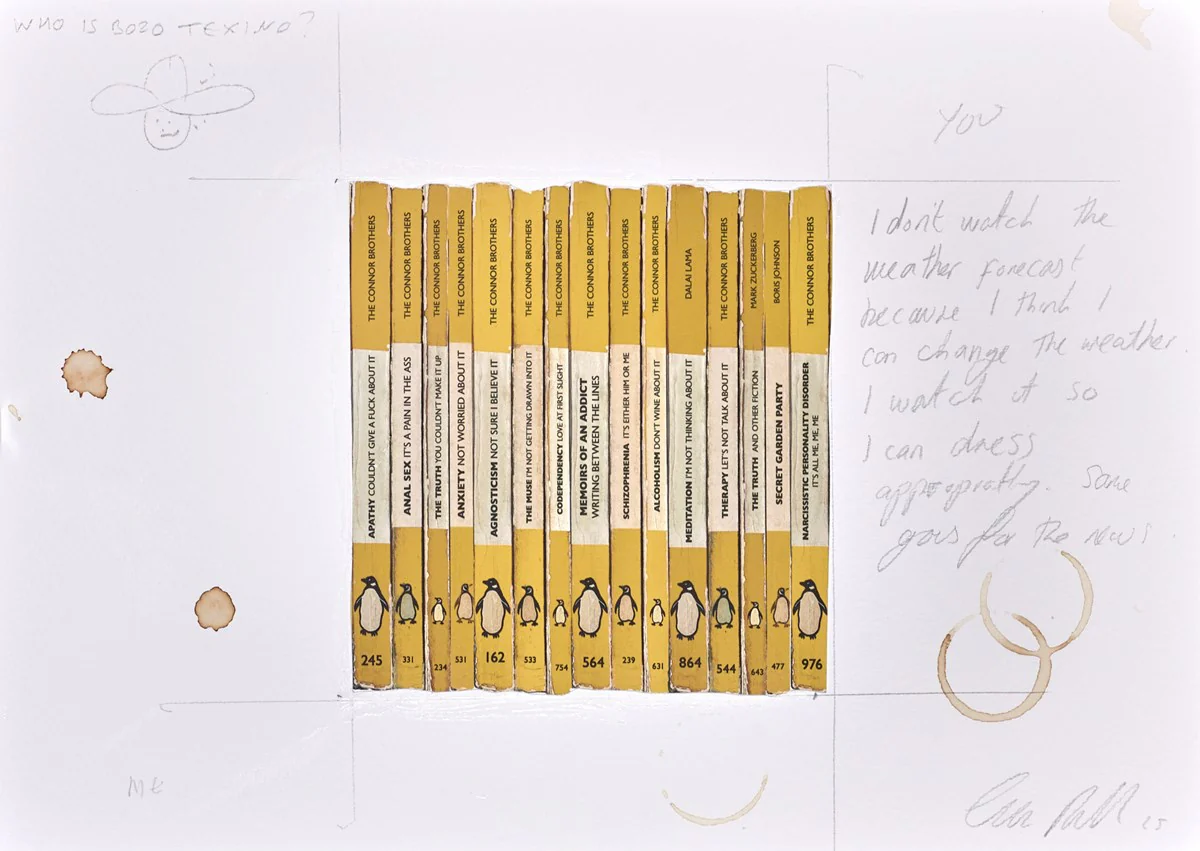 WHO IS BOZO TEXINO?
YOU
THE CONNOR BROTHERS
APATHY COULDN'T GIVE A FUCK ABOUT IT
245
THE CONNOR BROTHERS
ANAL SEX IT'S A PAIN IN THE ASS
331
THE CONNOR BROTHERS
THE TRUTH YOU COULDN'T MAKE IT UP
234
THE CONNOR BROTHERS
ANXIETY NOT WORRIED ABOUT IT
531
THE CONNOR BROTHERS
AGNOSTICISM NOT SURE I BELIEVE IT
162
THE CONNOR BROTHERS
THE MUSE I'M NOT GETTING DRAWN INTO IT
533
THE CONNOR BROTHERS
CODEPENDENCY LOVE AT FIRST SLIGHT
754
THE CONNOR BROTHERS
MEMOIRS OF AN ADDICT
WRITING BETWEEN THE LINES
564
THE CONNOR BROTHERS
SCHIZOPHRENIA IT'S EITHER HIM OR ME
239
THE CONNOR BROTHERS
ALCOHOLISM DON'T WINE ABOUT IT
631
DALAI LAMA
MEDITATION I'M NOT THINKING ABOUT IT
864
THE CONNOR BROTHERS
THERAPY LET'S NOT TALK ABOUT IT
544
MARK ZUCKERBERG
THE TRUTH AND OTHER FICTION
643
BORIS JOHNSON
SECRET GARDEN PARTY
477
THE CONNOR BROTHERS
NARCISSISTIC PERSONALITY DISORDER
IT'S ALL ME, ME, ME
976
I don't watch the
weather forecast
because I think I
can change the weather.
I watch it so
I can dress
appropratly. Same
goes for the news
ME
25